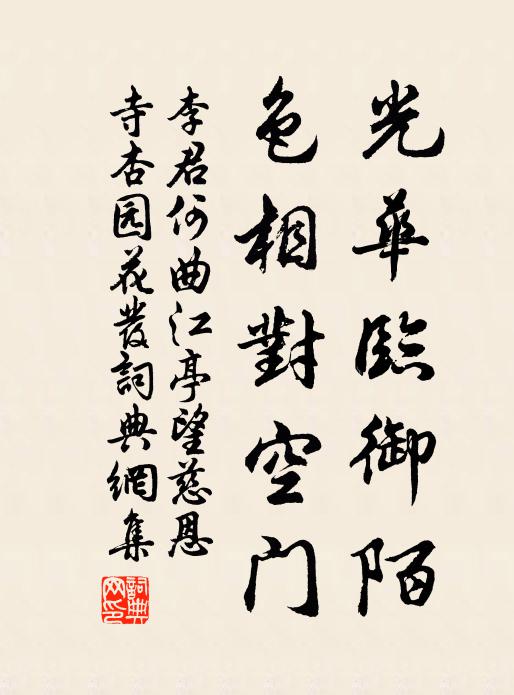 光華臨御陌
色相對空門
李君何曲江亭望慈恩
寺杏园花發詞典網集
詞典网印